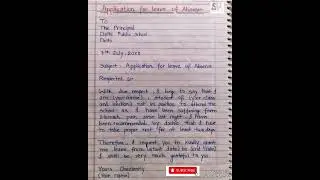 Application for leave of Absence
To
The Principal
Delhi Public School
Delhi
7th July, 2023
Subject : Application for leave of Absence
Respected sir
With due respect, I beg to say that I
am (your name), student of (your class
and section) not in position to attend the
school as I have been suffering from
stomach pain since last night. I have
been recommended by doctor that I have
to take proper rest for at least two days.
Therefore, I request you to kindly grant
me leave from (start date) to (end date)
I shall be very much grateful to you
Yours Obediently
(Your name)
SUBSCRIBE